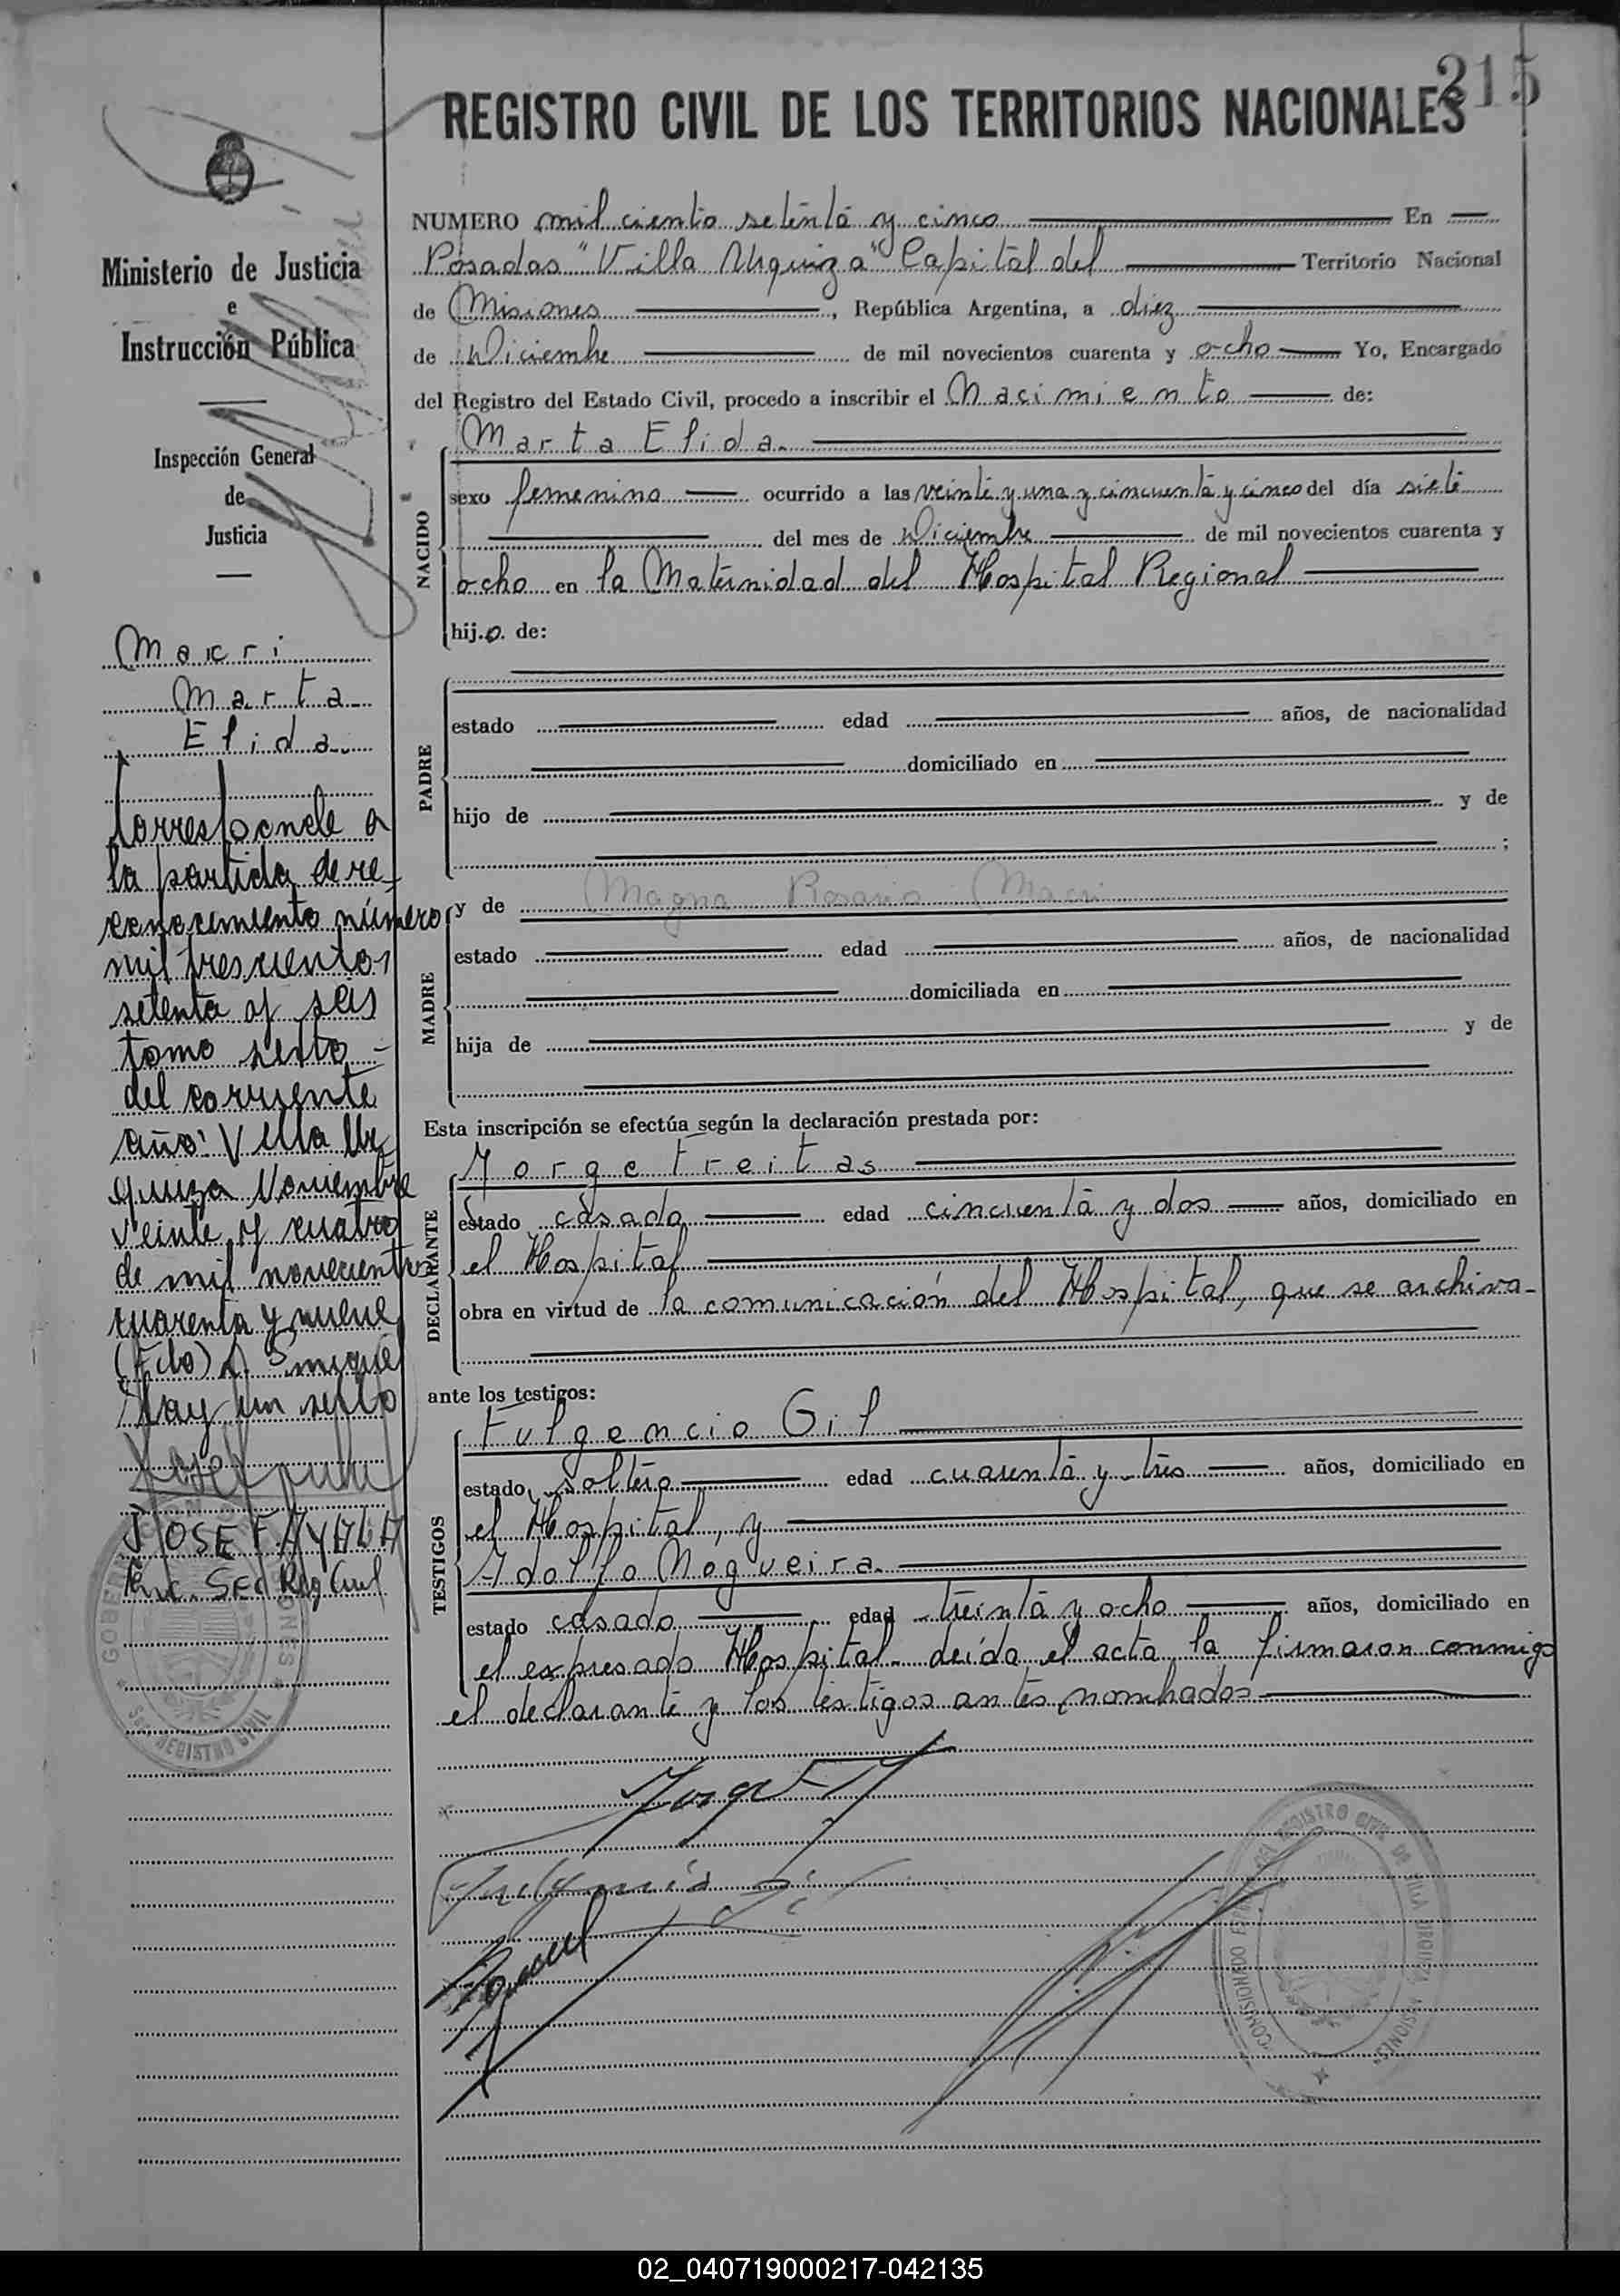 215
REGISTRO CIVIL DE LOS TERRITORIOS NACIONALES
Ministerio de Justicia
e
Instrucción Pública
Inspección General
de
Justicia
Macri
Marta
Elida.
Corresponde a
la partida de re-
conocimiento número
mil trescientos
setenta y seis
tomo sexto
del corriente
año: Villa Ur
quiza Noviembre
veinte y cuatro
de mil novecientos
cuarenta y nueve
(Fdo)
Hay un sello
JOSE F. AYALA
Enc. Sec Reg Civil
GOBERNACION MISIONES
Sec. REGISTRO CIVIL
NUMERO mil ciento setenta y cinco En
Posadas "Villa Urquiza" Capital del Territorio Nacional
de Misiones , República Argentina, a diez
de Diciembre de mil novecientos cuarenta y ocho Yo, Encargado
del Registro del Estado Civil, procedo a inscribir el Nacimiento de:
NACIDO
Marta Elida.
sexo femenino ocurrido a las veinte y una y cincuenta y cinco del día siete
del mes de Diciembre de mil novecientos cuarenta y
ocho en la Maternidad del Hospital Regional
hij.o. de:
PADRE
estado edad años, de nacionalidad
domiciliado en
hijo de y de
;
MADRE
y de Magna Rosario Macri
estado edad años, de nacionalidad
domiciliada en
hija de y de
Esta inscripción se efectúa según la declaración prestada por:
DECLARANTE
Jorge Freitas
estado casado edad cincuenta y dos años, domiciliado en
el Hospital
obra en virtud de la comunicación del Hospital, que se archiva-
ante los testigos:
TESTIGOS
Fulgencio Gil
estado soltero edad cuarenta y tres años, domiciliado en
el Hospital, y
Adolfo Nogueira.
estado casado edad treinta y ocho años, domiciliado en
el expresado Hospital- Leída el acta la firmaron conmigo
el declarante y los testigos antes nombrados
Jorge F
Fulgencio Gil
COMISIONADO ESPECIAL DEL REGISTRO CIVIL DE VILLA URQUIZA MISIONES
02_040719000217-042135